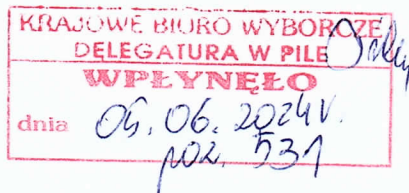 KRAJOWE BIURO WYBORCZE
DELEGATURA W PILE
WPŁYNĘŁO
dnia 05.06.2024r.
poz. 531